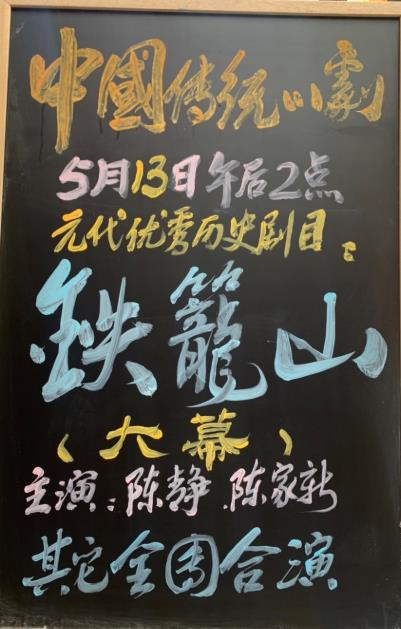 中國传统川劇
5月13日午后2点
元代优秀历史剧目：
鉄籠山
（大幕）
主演：陈静.陈家新
其它全团合演